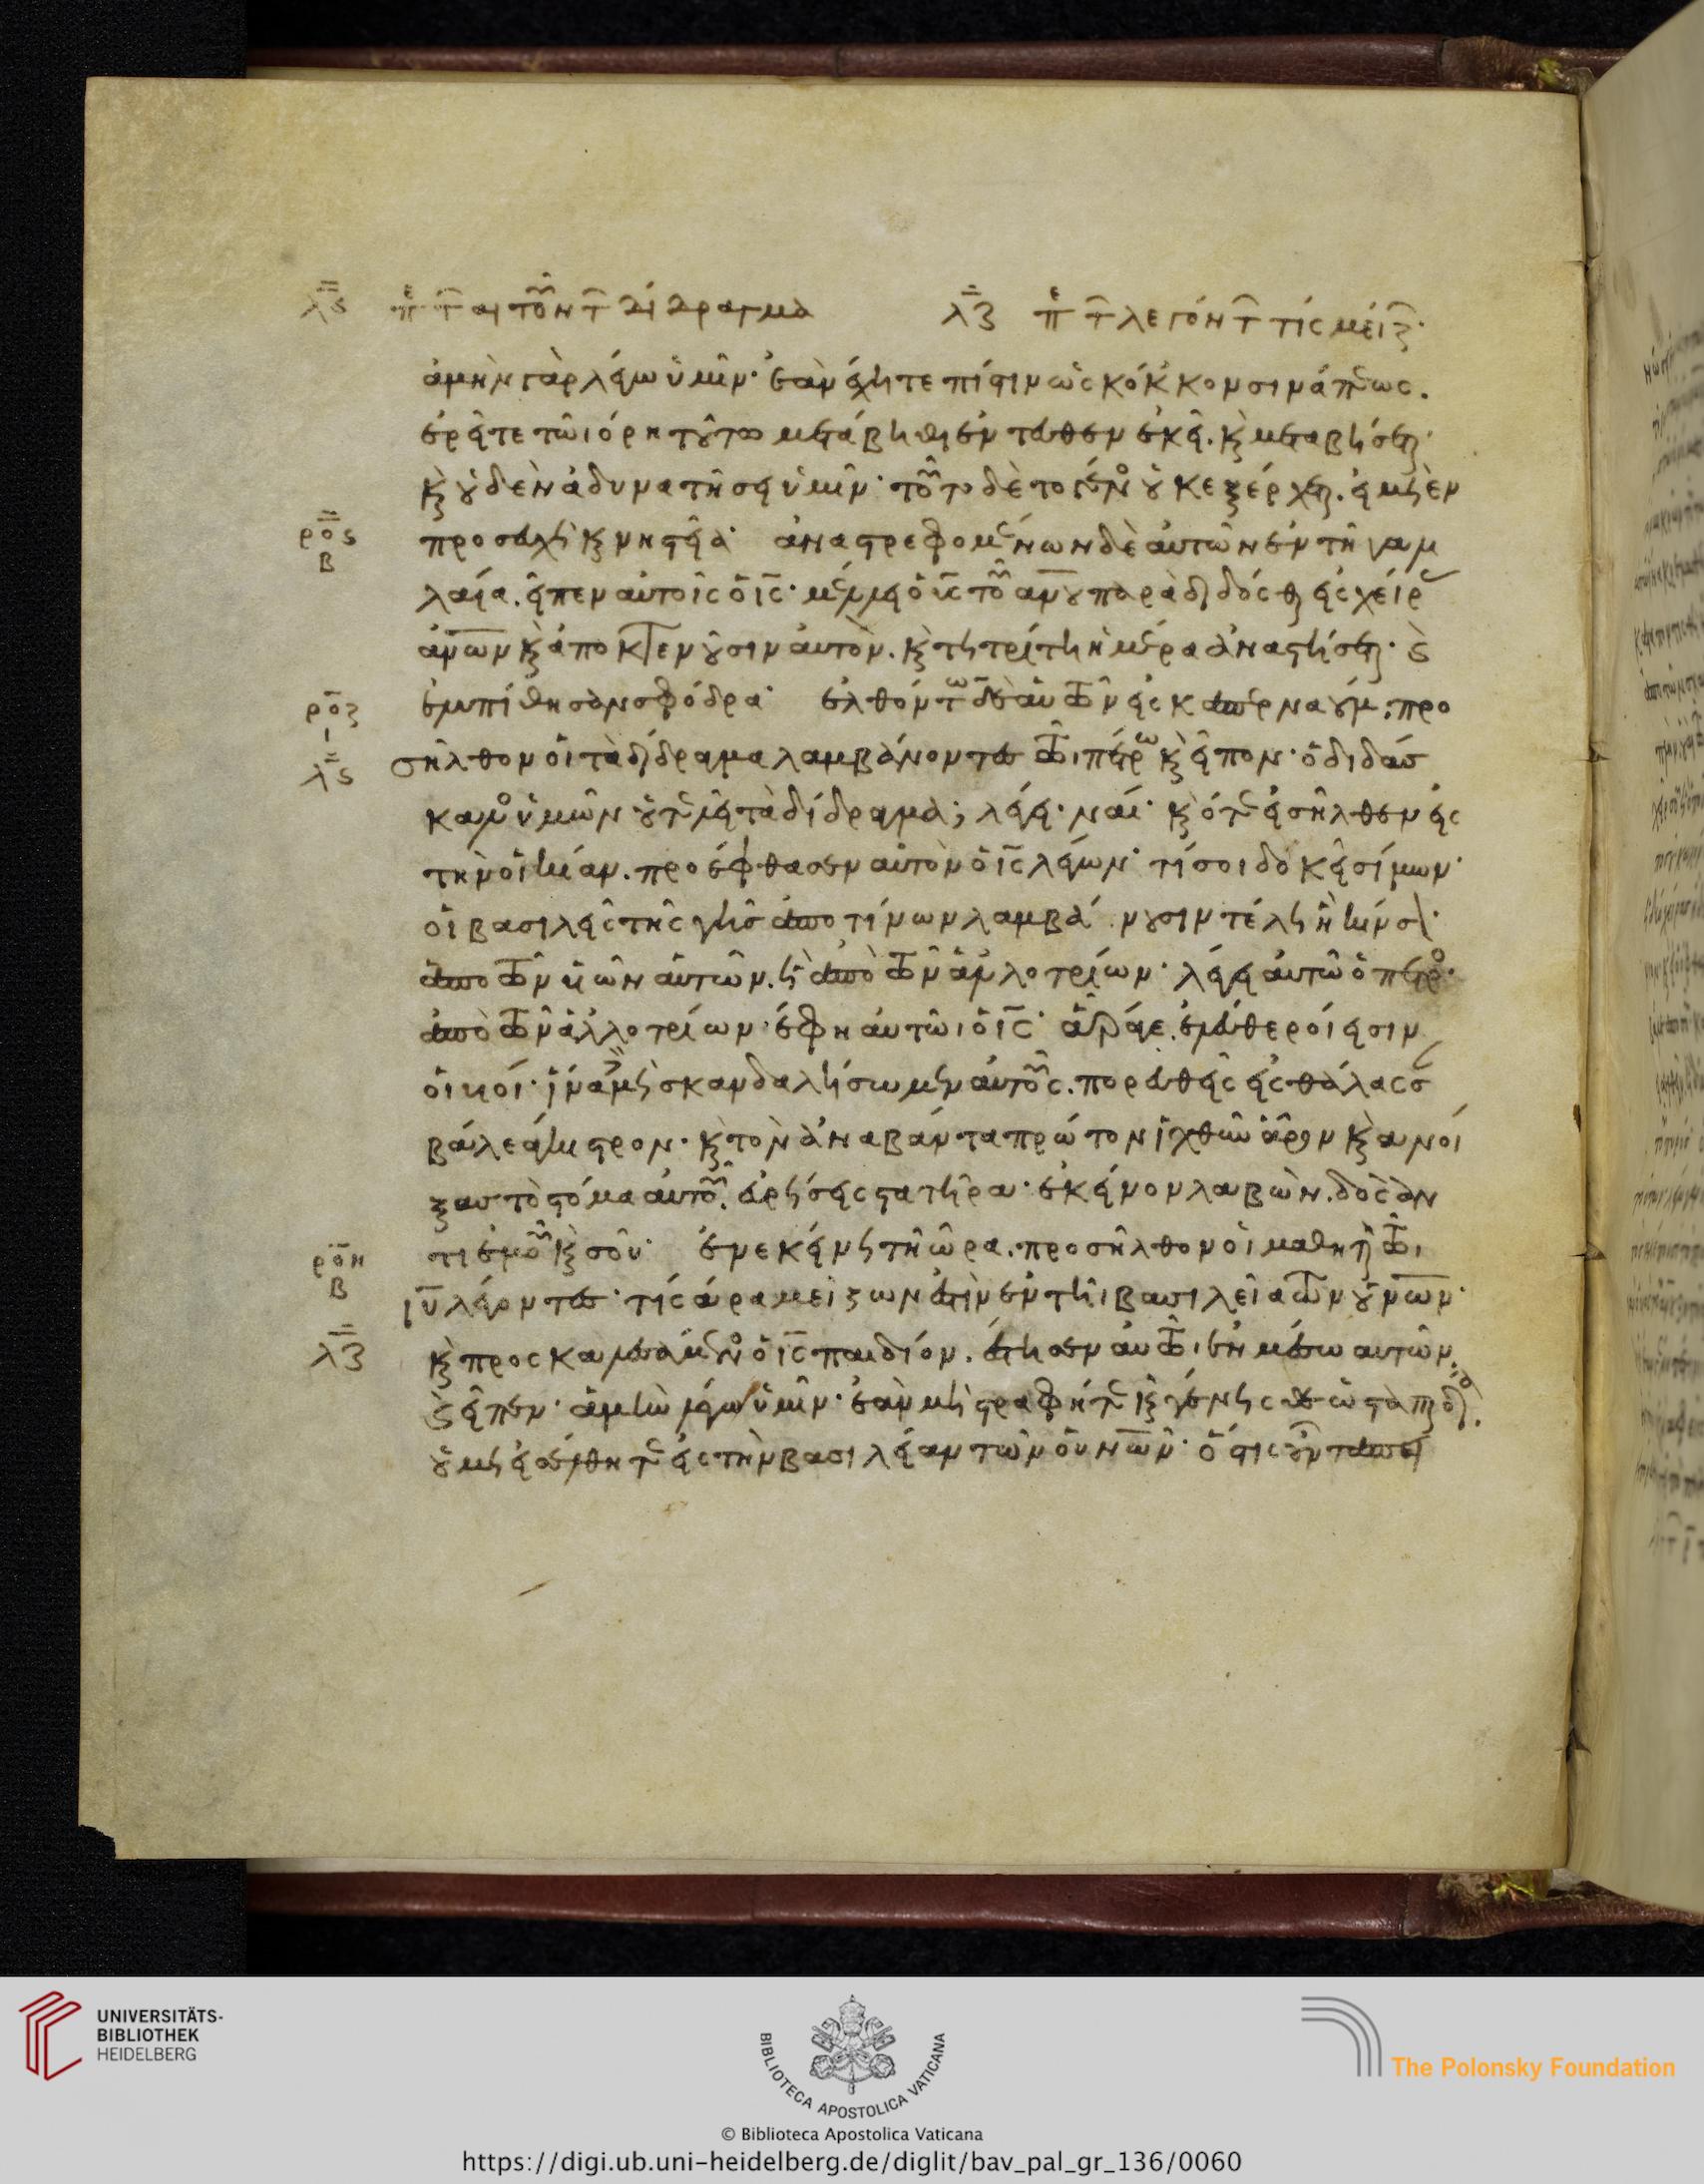 λϛ π τ αιτουντ διδραγμα λζ π τ λεγοντ τίς μείζ
ἀμὴν γὰρ λέγω ὑμῖν· ἐὰν ἔχητε πίστιν ὡς κόκκον σινάπεως.
ἐρεῖτε τῶι όρη τούτω μετάβηθι ἐντεῦθεν ἐκεῖ. κ μεταβήσεται·
κ οὐδὲν ἀδυνατήσει ὑμῖν· τοῦτο δὲ το γένος οὐκ εξέρχεται. εἰ μὴ ἐν
ροϛ
β
προσευχῆ κ νηστεία· ἀναστρεφομένων δὲ αὐτῶν ἐν τῆ γαλι
λαία. εἶπεν αὐτοῖς ὁ ις· μέλλει ὁ υς τοῦ ανου παραδίδοσθαι εἰς χεῖρας
ανων κ ἀποκτενοῦσιν αὐτὸν. κ τη τρίτη ἡμέρα ἀναστήσεται· κ
ροζ
ι
ἐλυπήθησαν σφόδρα· ἐλθόντων δὲ αὐτῶν εἰς καπερναούμ. προ
λϛ
σῆλθον οἱ τὰ δίδραγμα λαμβάνοντες τῶι πέτρω κ εἶπον· ὁ διδάσ
καλος ὑμῶν οὐ τελεῖ τὰ δίδραγμα; λέγει· ναί· κ ὅτε εἰσῆλθεν εἰς
τὴν οἰκίαν. προέφθασεν αὐτὸν ὁ ις λέγων· τί σοι δοκεῖ σίμων·
οἱ βασιλεῖς τῆς γῆς ἀπο τίνων λαμβάνουσιν τέλη ἢ κῆνσον·
ἀπο τῶν υιῶν αὐτῶν. ἢ ἀπὸ τῶν ἀλλοτρίων· λέγει αὐτῶ ὁ πέτρος·
ἀπὸ τῶν ἀλλοτρίων· έφη αὐτῶι ὁ ις· ἄραγε. ἐλεύθεροί εἰσιν
οἱ υιοί· ἵνα δὲ μὴ σκανδαλήσωμεν αὐτοῦς. πορευθεὶς εἰς θάλασσαν
βάλε άγκιστρον. κ τὸν ἀναβάντα πρώτον ἰχθὺν ἆρον κ ανοί
ξας τὸ στόμα αὐτοῦ. εὑρήσεις στατῆρα· ἐκείνον λαβὼν. δὸς ἀν
ροη
β
τι ἐμοῦ κ σοῦ· ἐν εκείνη τῆ ὥρα. προσῆλθον οἱ μαθηταὶ τῶι
ιυ λέγοντες· τίς άρα μείζων ἐστὶν ἐν τῆι βασιλεία τῶν ουνων·
λζ
κ προςκαλεσάμενος ὁ ις παιδίον. ἔστησεν αὐτῶι ἐν μέσω αυτῶν.
κ εἶπεν· ἀμὴν λέγω ὑμῖν· ἐὰν μὴ στραφῆτε κ γένησθε ὡς τὰ παιδία.
οὐ μὴ εἰσέλθητε εἰς τὴν βασιλείαν τῶν ουνων· ὅστις οὖν ταπει
UNIVERSITÄTS-
BIBLIOTHEK
HEIDELBERG
BIBLIOTECA APOSTOLICA VATICANA
The Polonsky Foundation
© Biblioteca Apostolica Vaticana
https://digi.ub.uni-heidelberg.de/diglit/bav_pal_gr_136/0060